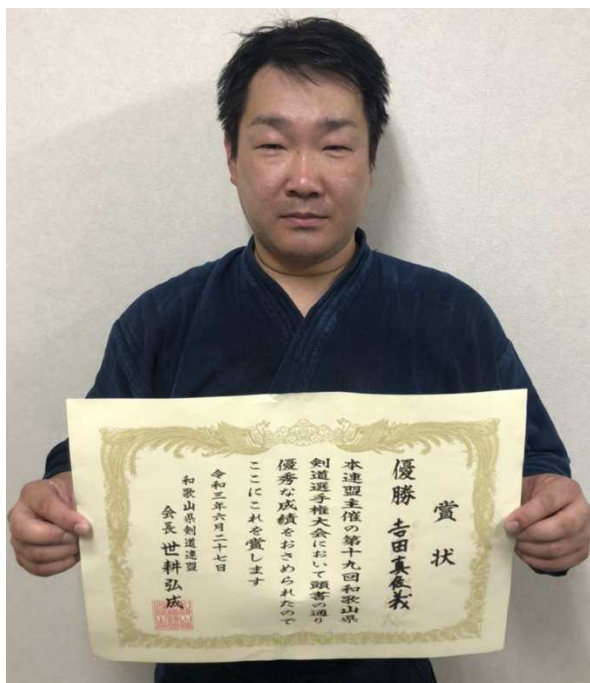 賞状
優勝 吉田真佐義
本連盟主催の第十九回和歌山県
剣道選手権大会において頭書の通り
優秀な成績をおさめられたので
ここにこれを賞します
令和三年六月二十七日
和歌山県剣道連盟
会長 世耕弘成